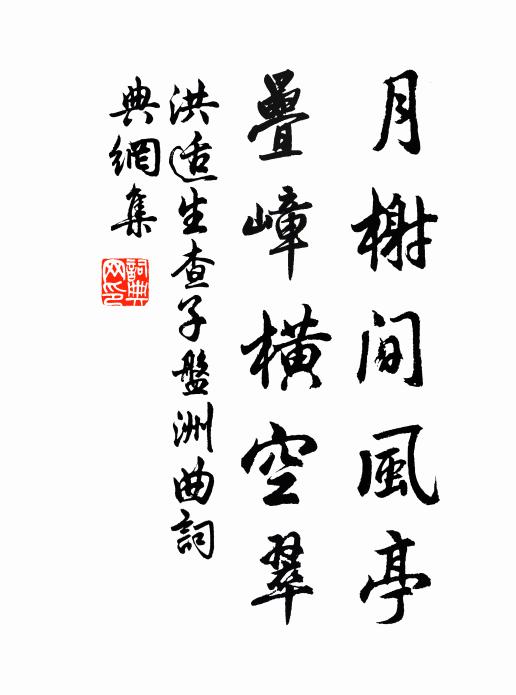 月榭間風亭
疊嶂橫空翠
洪适生查子盤洲曲詞
典網集
詞典網印